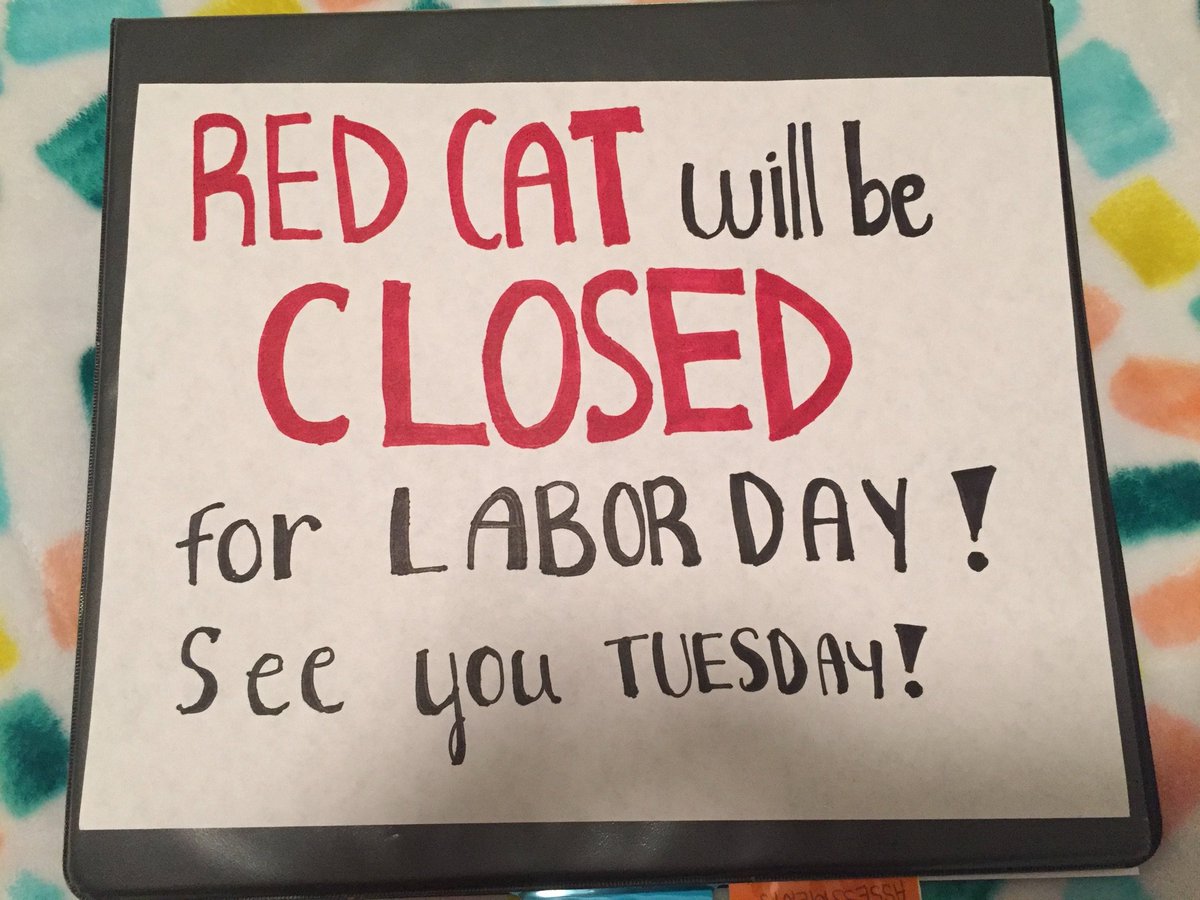 RED CAT will be
CLOSED
for LABOR DAY!
See you TUESDAY!
ASSESSMENTS